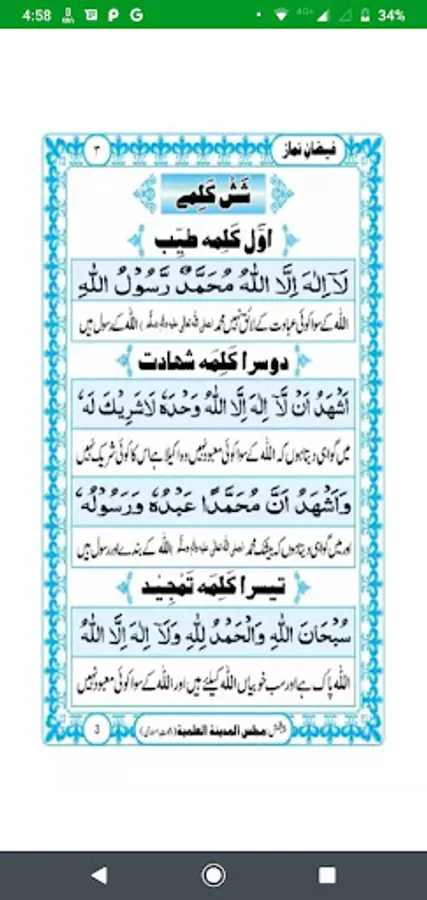 4:58 4G+ 34%
فیضانِ نماز ۳
شَش کَلِمے
اوّل کَلِمہ طیِّب
لَآ اِلٰهَ اِلَّا اللّٰهُ مُحَمَّدٌ رَّسُوْلُ اللّٰهِ
اللہ کے سوا کوئی عبادت کے لائق نہیں محمد (صلی اللہ تعالیٰ علیہ واٰلہ وسلم) اللہ کے رسول ہیں
دوسرا کَلِمَہ شھادت
اَشْهَدُ اَنْ لَّآ اِلٰهَ اِلَّا اللّٰهُ وَحْدَهٗ لَاشَرِيْكَ لَهٗ
میں گواہی دیتا ہوں کہ اللہ کے سوا کوئی معبود نہیں وہ اکیلا ہے اس کا کوئی شریک نہیں
وَاَشْهَدُ اَنَّ مُحَمَّدًا عَبْدُهٗ وَرَسُوْلُهٗ
اور میں گواہی دیتا ہوں کہ بیشک محمد (صلی اللہ تعالیٰ علیہ واٰلہ وسلم) اللہ کے بندے اور رسول ہیں
تیسرا کَلِمَہ تَمْجِید
سُبْحَانَ اللّٰهِ وَالْحَمْدُ لِلّٰهِ وَلَآ اِلٰهَ اِلَّا اللّٰهُ
اللہ پاک ہے اور سب خوبیاں اللہ کیلئے ہیں اور اللہ کے سوا کوئی معبود نہیں
مجلس المدینۃ العلمیۃ (دعوتِ اسلامی) 3